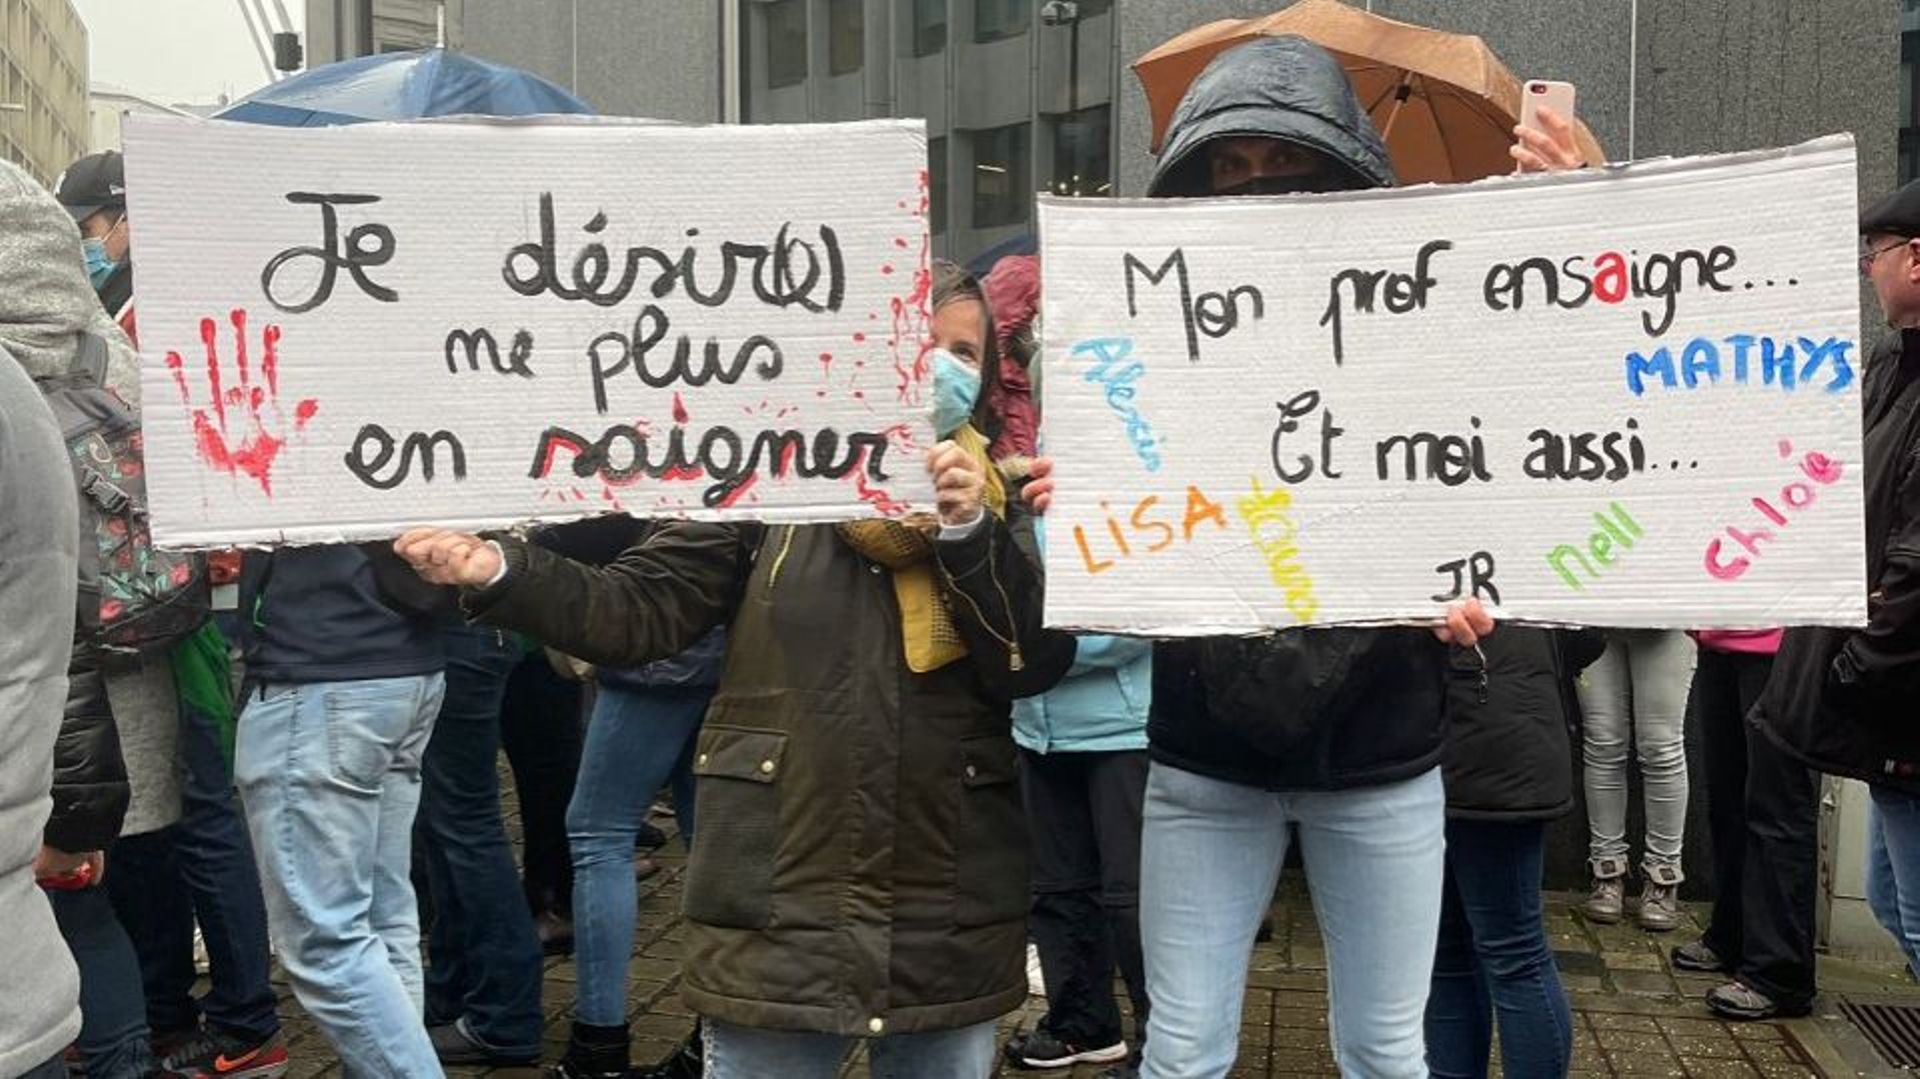 Je désir(e)
me plus
en saigner
Mon prof ensaigne...
MATHYS
Alexis
Et moi aussi...
LiSA
Chloé
nell
JR